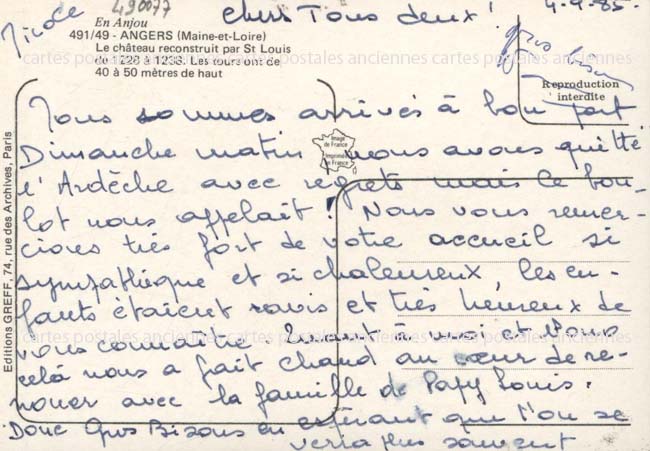 490077
Chers Tous deux !
4.9.85.
Nicole
gros bisous
En Anjou
491/49 - ANGERS (Maine-et-Loire)
Le château reconstruit par St Louis
de 1228 à 1238. Les tours ont de
40 à 50 mètres de haut
Reproduction
interdite
cartes postales anciennes cartes postales anciennes cartes postales anciennes
Image
de France
Imprimé
en France
Editions GREFF, 74, rue des Archives, Paris
Nous sommes arrivés à bon port
Dimanche matin, nous avons quitté
l'Ardèche avec regrets mais le bou-
lot nous appelait ! Nous vous remer-
cions très fort de votre accueil si
sympathique et si chaleureux, les en-
fants étaient ravis et très heureux de
vous connaître. Quant à moi et
celà nous a fait chaud au cœur de re-
nouer avec la famille de Papy Louis.
Donc Gros Bisous en espérant que l'on se
verra plus souvent
cartes postales anciennes cartes postales anciennes cartes postales anciennes